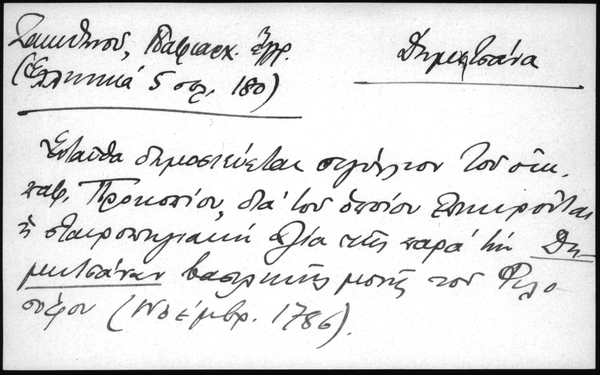 Ζακυθηνοῦ, Πατριαρχ. Ἔγγρ.
(Ἑλληνικά 5 σελ. 180)
Δημητσάνα
Ἐνταῦθα δημοσιεύεται σιγίλλιον τοῦ οἰκ.
πατ. Προκοπίου, διά τοῦ ὁποίου ἐπικυροῦται
ἡ σταυροπηγιακή ἀξία τῆς παρά τῇ Δη
μητσάναν βασιλικῆς μονῆς τοῦ Φιλο
σόφου (Νοέμβρ. 1786).